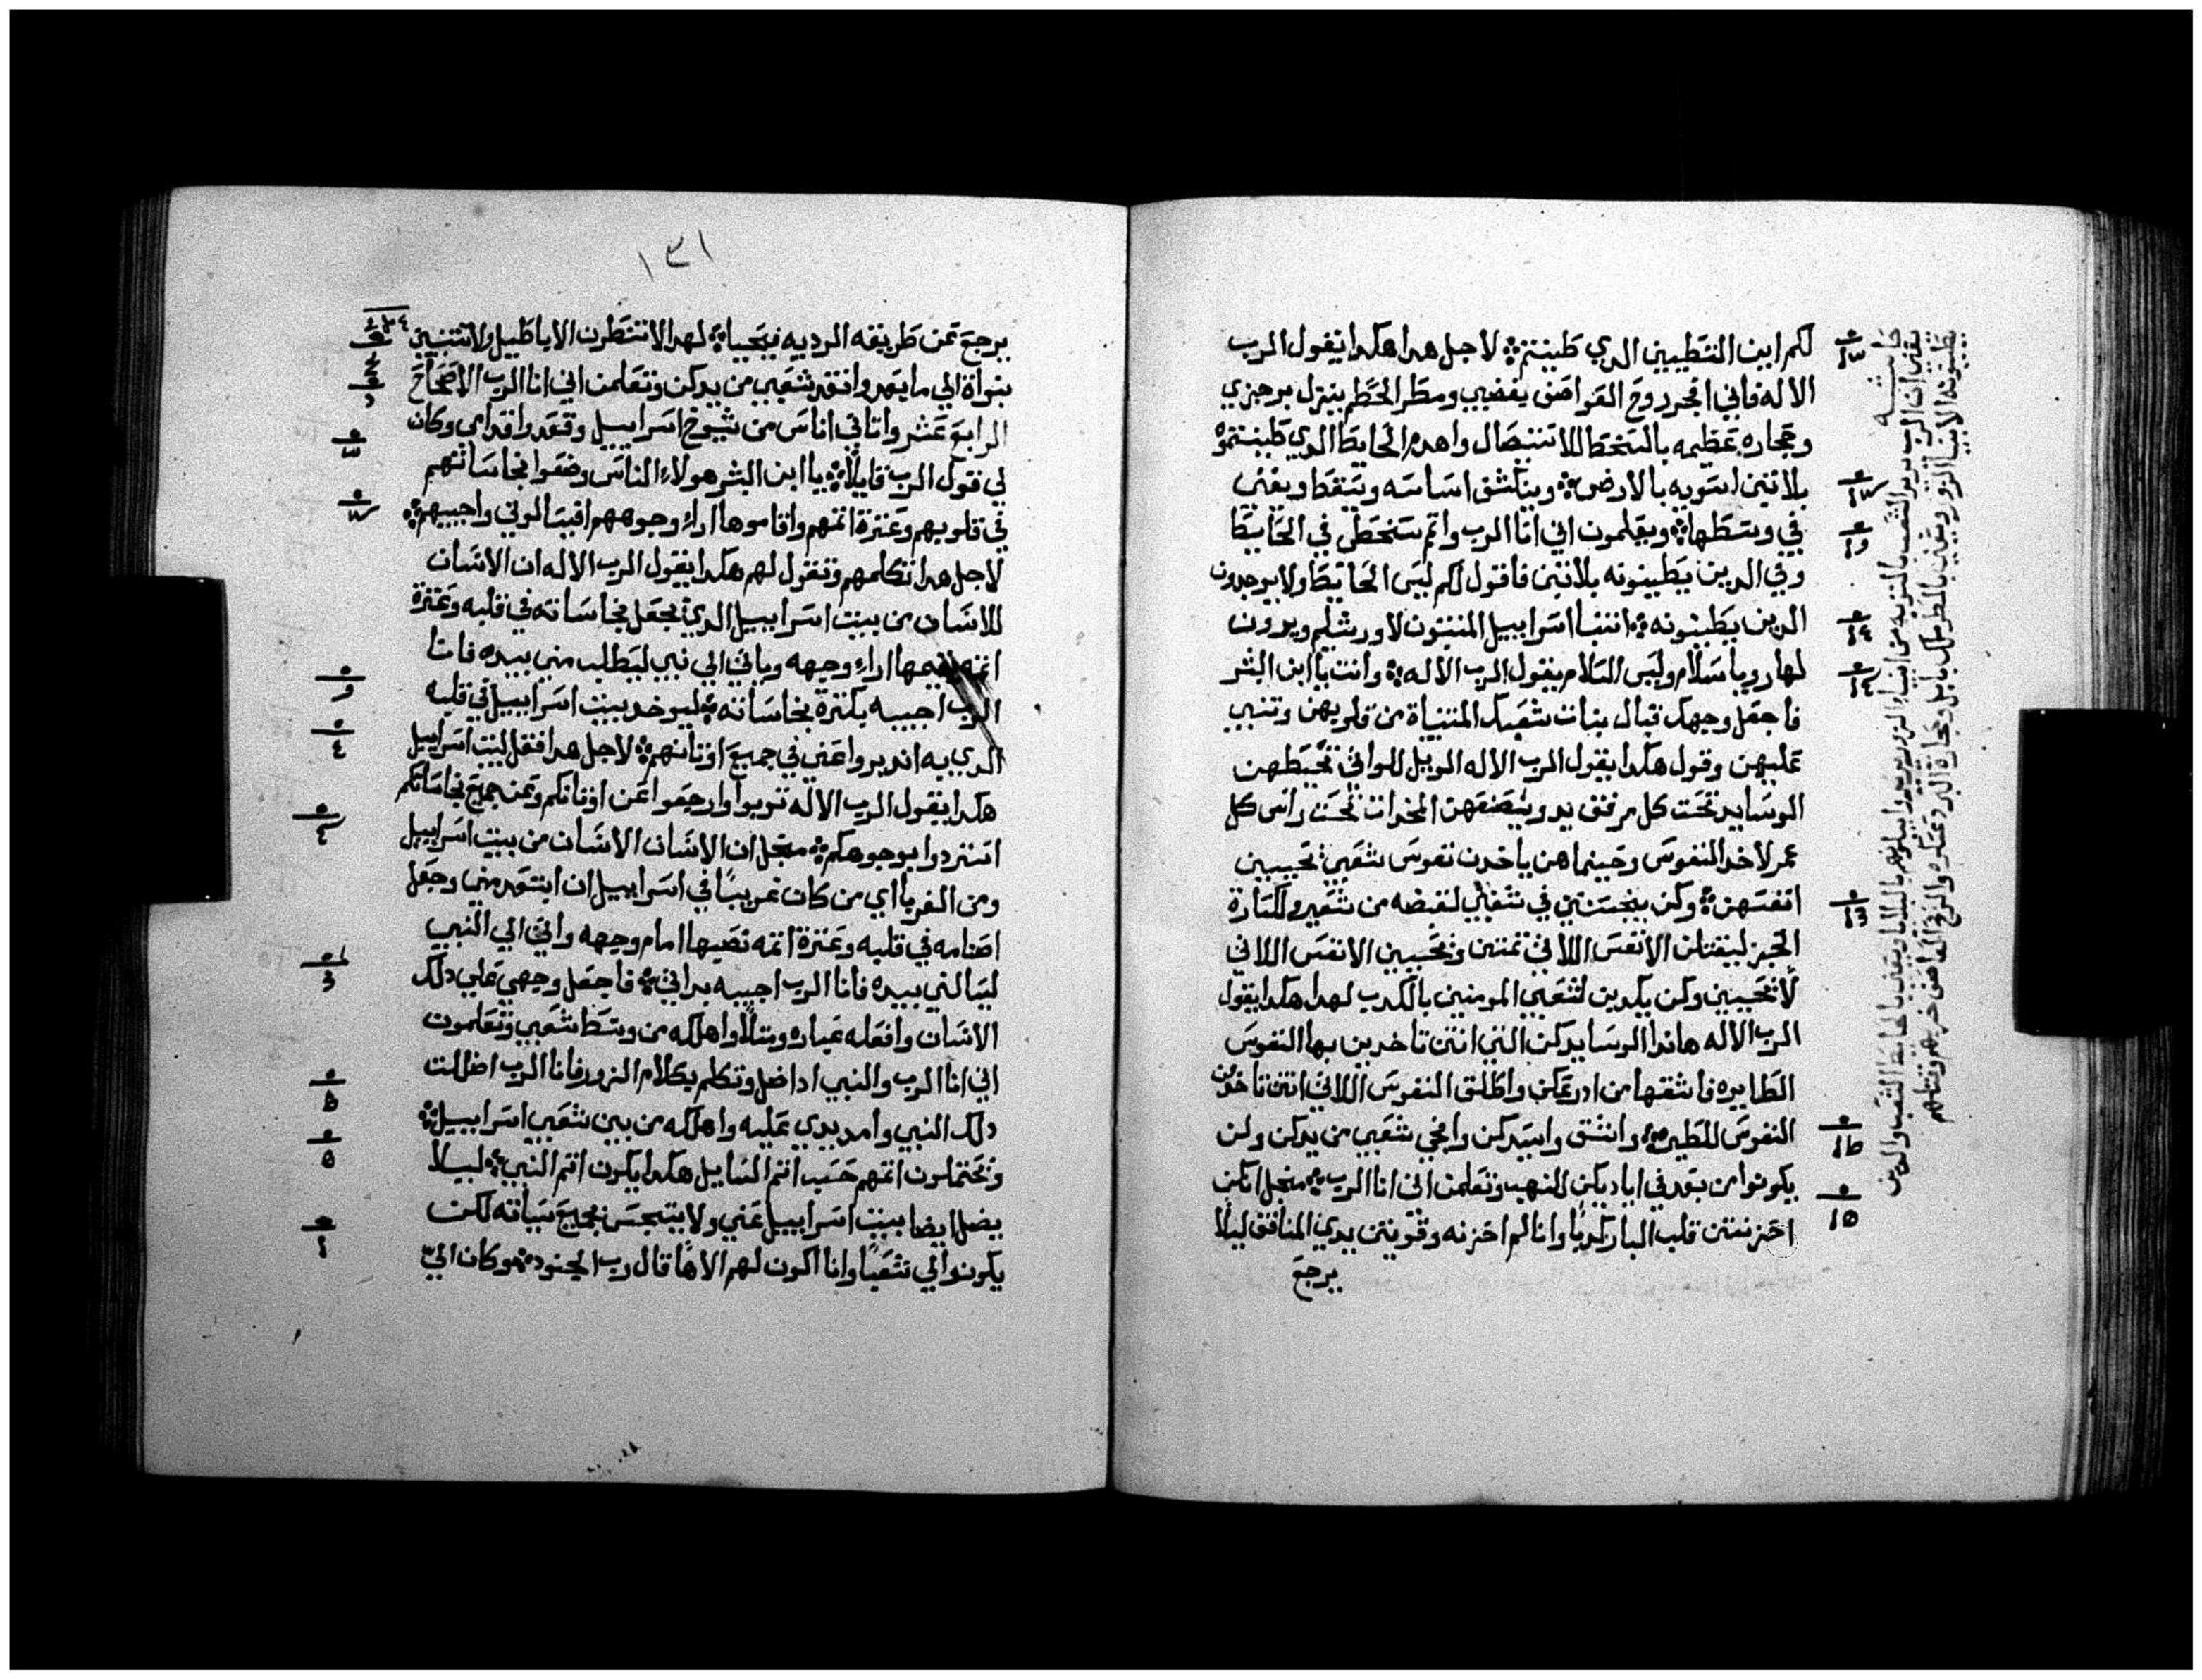 لكم اين التطيين الدي طينتم لاجل هدا هكدا يقول الرب
الاله فاني افجر روح العواصف بغضبي ومطر الحطم ينزل برجزي
وحجاره عظيمه بالسخط للاستيصال واهدم الحايط الدي طينتموه
بلا تبن اسويه بالارض وينكشف اساسه ويسقط ويفني
في وسطها ويعلمون اني انا الرب واتم سخطي في الحايط
وفي الدين يطيينونه بلا تبن فاقول لكم ليس الحايط ولا يوجدون
الدين يطينونه انبيا اسراييل المتنبون لاورشليم ويرون
لها رويا سلام وليس السلام يقول الرب الاله وانت يا ابن البشر
فاجعل وجهك قبال بنات شعبك المتنباة من قلوبهن وتنبي
عليهن وقول هكدا يقول الرب الاله الويل للواتي تخيطهن
الوسايد تحت كل مرفق يد ويصنعهن المخدات تحت راس كل
عمر لاخد النفوس وحينما هن ياخدن نفوس شعبي تحيبين
انفسهن وكن ينجستني في شعبي لقبضه من شعير وللسارة
الخبز ليقتلن الانفس اللاتي تمتن وتحيين الانفس اللاتي
لا تحيين وكن يكدبن لشعبي المومنين بالكدب لهدا هكدا يقول
الرب الاله هاندا الوسايدكن التي انتن تاخدين بها النفوس
الطايره فاشقها من ادرعكن واطلق النفوس اللاتي انتن تاخدن
النفوس للطير وانشق وابيدكن وانجي شعبي من يدكن ولن
يكونوا من بعد في اياديكن للنهب وتعلمن اني انا الرب مجل انكن
احزنتن قلب البار كدبا وانا لم احزنه وقويتن يدي المنافق ليلا
يرجع
حاشيه
١٣١
يرجع عن طريقه الرديه فيحيا لهدا لا تنظرن الاباطيل ولا تتنبين
بنواة الي ما بعد وانقد شعبي من يدكن وتعلمن اني انا الرب الاصحاح
الرابع عشر واتا الي اناس من شيوخ اسراييل وقعدوا قدامي وكان
لي قول الرب قايلا يا ابن البشر هولاء الناس وضعوا نجاساتهم
في قلوبهم وعترة اثمهم واقاموها اراء وجوههم افيسالوني واجيبهم
لاجل هدا تكلمهم وتقول لهم هكدا يقول الرب الاله ان الانسان
للانسان من بيت اسراييل الدي يجعل نجاساته في قلبه وعترة
اثمه يقيمها اراء وجهه وياتي الي نبي ليطلب مني بيده فانا
الرب اجيبه بكترة نجاساته ليوخد بيت اسراييل في قلبه
الدي به اندبروا عني في جميع اوتانهم لاجل هدا فقل لبيت اسراييل
هكدا يقول الرب الاله توبوا وارجعوا عن اوتانكم وعن جميع نجاساتكم
استردوا بوجوهكم مجل ان الانسان الانسان من بيت اسراييل
ومن الغربا اي من كان غريبا في اسراييل ان ابتعد مني وجعل
اصنامه في قلبه وعترة اثمه نصيها امام وجهه واتي الي النبي
ليسالني بيده فانا الرب اجيبه بداتي فاجعل وجهي علي دلك
الانسان وافعله عباره ومتلا واهلكه من وسط شعبي وتعلمون
اني انا الرب والنبي ادا ضل وتكلم بكلام الزور فانا الرب اضللت
دلك النبي وامد يدي عليه واهلكه من بين شعبي اسراييل
وتحتملون اثمهم حسب اثم السايل هكدا يكون اثم النبي ليلا
يضل ايضا بيت اسراييل عني ولا يتنجس بجميع سياته لكن
يكونوا لي شعبا وانا اكون لهم الاها قال رب الجنود وكان الي